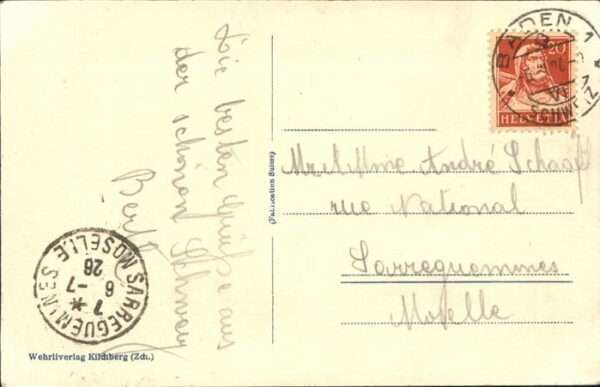 Die besten Grüße aus
der schönen Schweiz
Berth
BADEN 1
SCHWEIZ
20
HELVETIA
(Fabrication Suisse)
Mr et Mme André Schaaff
rue National
Sarreguemmes
Moselle
SARREGUEMINES
MOSELLE
7 *
6 -7
26
Wehrliverlag Kilchberg (Zch.)